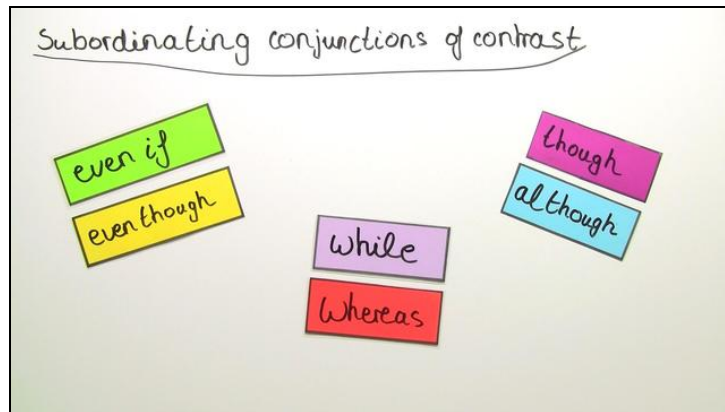 Subordinating conjunctions of contrast
even if
even though
while
whereas
though
although